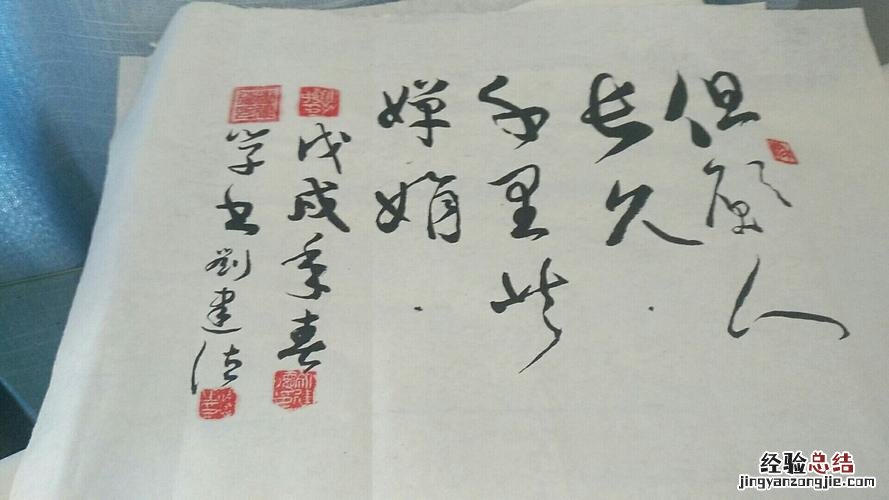 但願人
長久.
千里共
嬋娟.
戊戌年春
学书劉建德
经验总结
jingyanzongjie.com